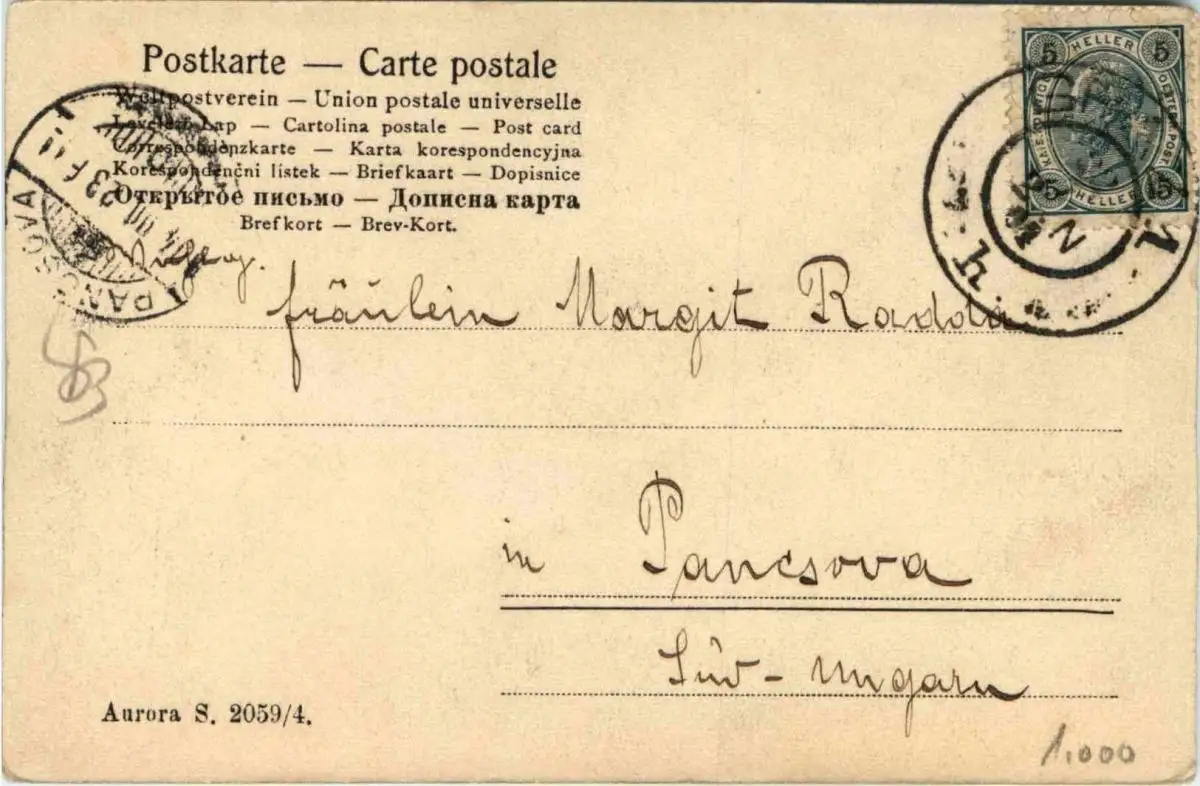 Postkarte — Carte postale
Weltpostverein — Union postale universelle
Levelező-Lap — Cartolina postale — Post card
Correspondenzkarte — Karta korespondencyjna
Korespondenční lístek — Briefkaart — Dopisnice
Открытое письмо — Дописна карта
Brefkort — Brev-Kort.
5 HELLER 5
KAIS. KÖNIGL. OESTERR. POST
5 HELLER 5
PANCSOVA
fräulein Margit Radda
in Pancsova
Süd-Ungarn
Aurora S. 2059/4.
1.000